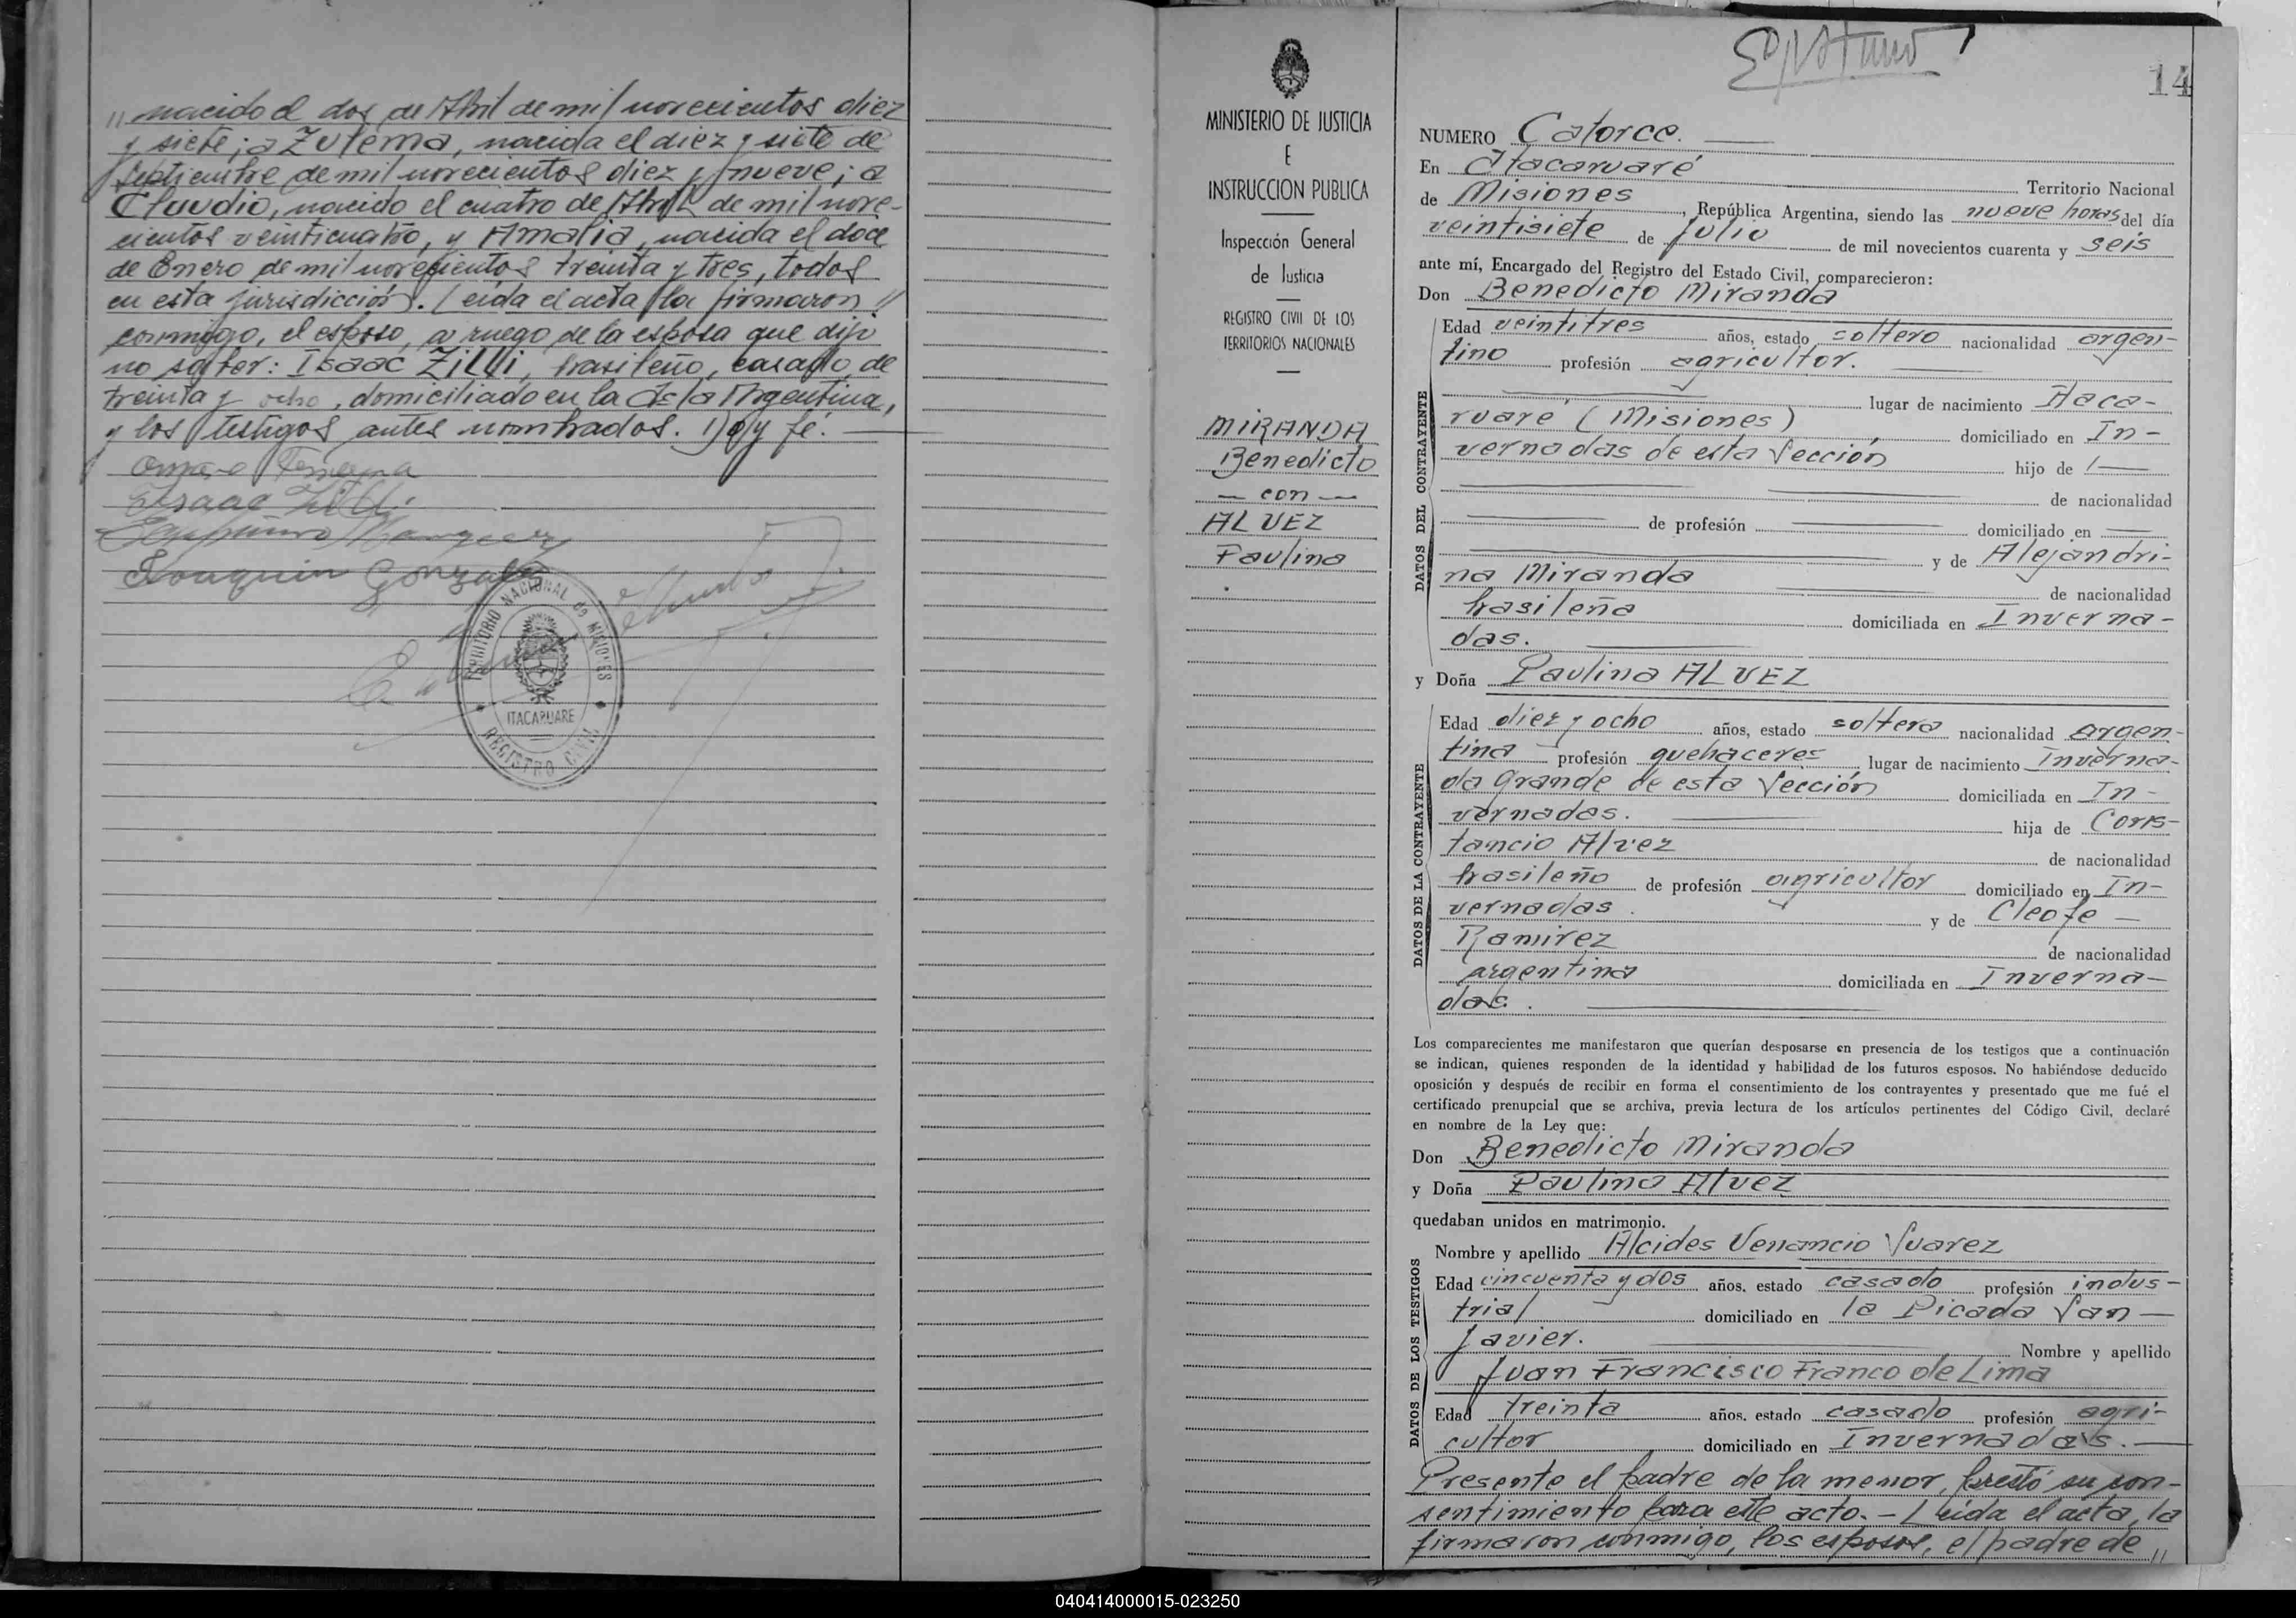 " nacido el dos de Abril de mil novecientos diez
y siete; a Zulema, nacida el diez y siete de
Septiembre de mil novecientos diez y nueve; a
Claudio, nacido el cuatro de Abril de mil nove-
cientos veinticuatro, y Amalia, nacida el doce
de Enero de mil novecientos treinta y tres, todos
en esta jurisdicción. Leída el acta la firmaron
conmigo, el esposo, a ruego de la esposa que dijo
no saber: Isaac Zilli, brasileño, casado de
treinta y ocho, domiciliado en la Argentina,
y los testigos antes nombrados. Doy fé.
Isaac Zilli
Joaquin Gonzalez
TERRITORIO NACIONAL de MISIONES
ITACARUARE
REGISTRO CIVIL
MINISTERIO DE JUSTICIA
E
INSTRUCCION PUBLICA
Inspección General
de Justicia
REGISTRO CIVIL DE LOS
TERRITORIOS NACIONALES
MIRANDA
Benedicto
— con —
ALVEZ
Paulina
14
NUMERO Catorce.
En Itacaruaré Territorio Nacional
de Misiones, República Argentina, siendo las nueve horas del día
veintisiete de julio de mil novecientos cuarenta y seis
ante mí, Encargado del Registro del Estado Civil, comparecieron:
Don Benedicto Miranda
DATOS DEL CONTRAYENTE
Edad veintitres años, estado soltero nacionalidad argen-
tino profesión agricultor.
lugar de nacimiento Itaca-
ruaré (Misiones) domiciliado en In-
vernadas de esta Sección hijo de
de nacionalidad
de profesión domiciliado en
y de Alejandri-
na Miranda de nacionalidad
brasileña domiciliada en Inverna-
das.
y Doña Paulina ALVEZ
DATOS DE LA CONTRAYENTE
Edad diez y ocho años, estado soltera nacionalidad argen-
tina profesión quehaceres lugar de nacimiento Inverna-
da Grande de esta Sección domiciliada en In-
vernadas. hija de Cons-
tancio Alvez de nacionalidad
brasileño de profesión agricultor domiciliado en In-
vernadas. y de Cleofe
Ramirez de nacionalidad
argentina domiciliada en Inverna-
das.
Los comparecientes me manifestaron que querían desposarse en presencia de los testigos que a continuación
se indican, quienes responden de la identidad y habilidad de los futuros esposos. No habiéndose deducido
oposición y después de recibir en forma el consentimiento de los contrayentes y presentado que me fué el
certificado prenupcial que se archiva, previa lectura de los artículos pertinentes del Código Civil, declaré
en nombre de la Ley que:
Don Benedicto Miranda
y Doña Paulina Alvez
quedaban unidos en matrimonio.
DATOS DE LOS TESTIGOS
Nombre y apellido Alcides Venancio Suarez
Edad cincuenta y dos años. estado casado profesión indus-
trial domiciliado en la Picada San
Javier. Nombre y apellido
Juan Francisco Franco de Lima
Edad treinta años. estado casado profesión agri-
cultor domiciliado en Invernadas.
Presente el padre de la menor, prestó su con-
sentimiento para este acto. - Leída el acta, la
firmaron conmigo, los esposos, el padre de "
040414000015-023250